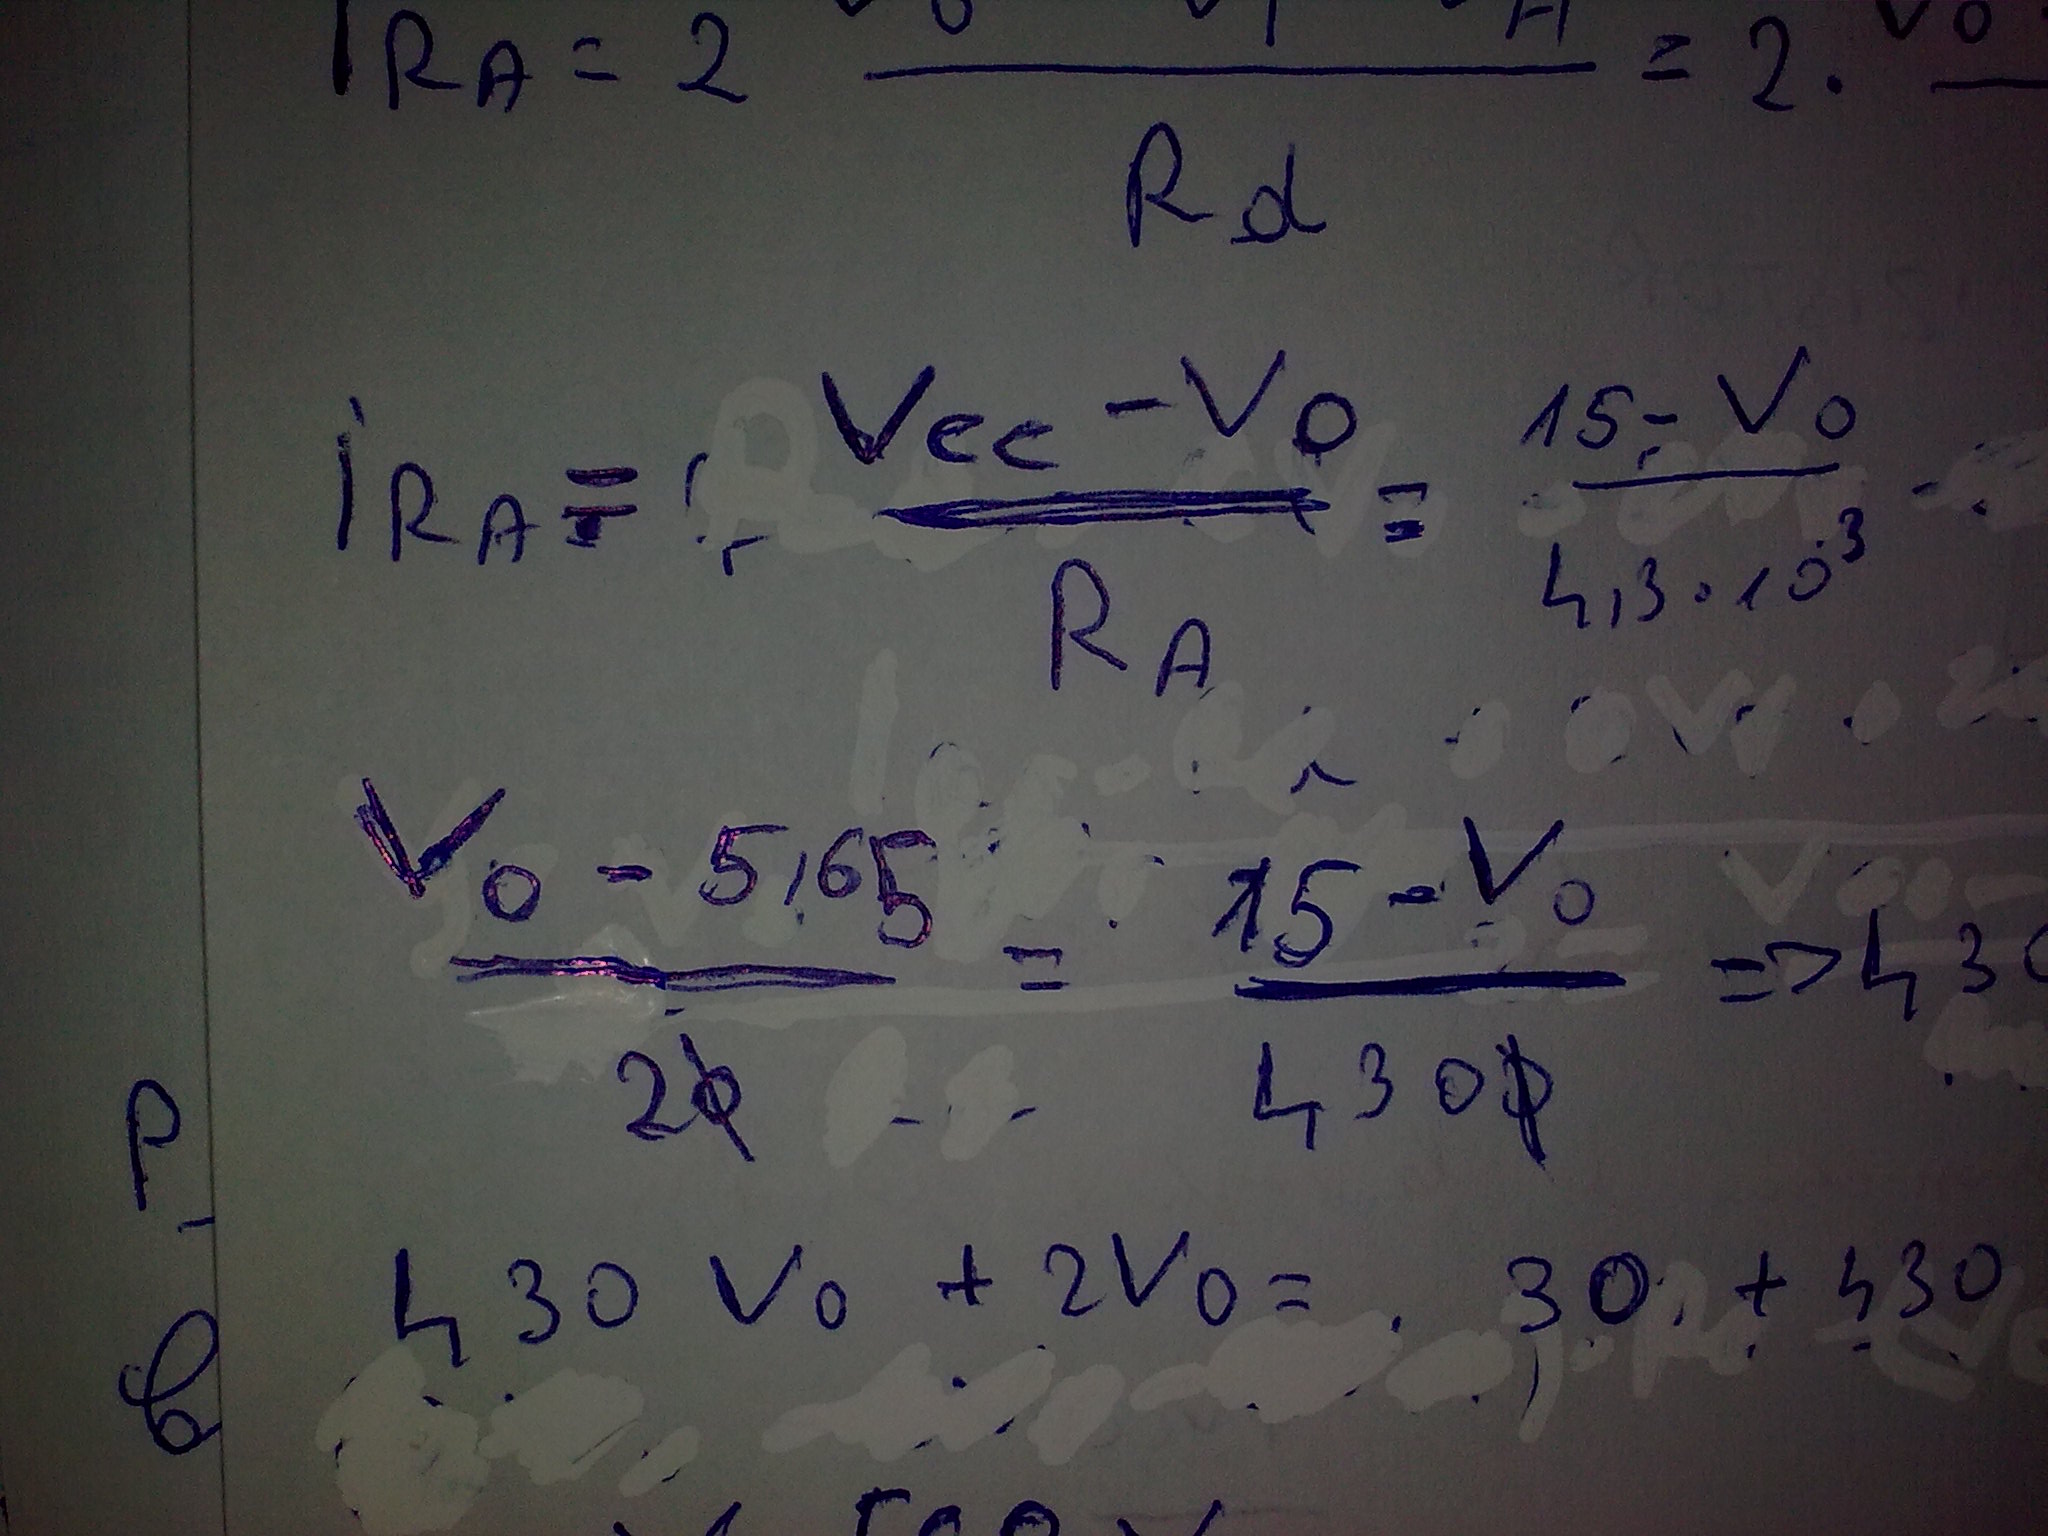 IRA = 2 V0 - V1 - VA / Rd = 2 . V0
IRA = Vcc - V0 / RA = 15 - V0 / 4,3 . 10³
V0 - 5,65 / 20 = 15 - V0 / 4300 => 430
P
430 V0 + 2V0 = 30 + 430